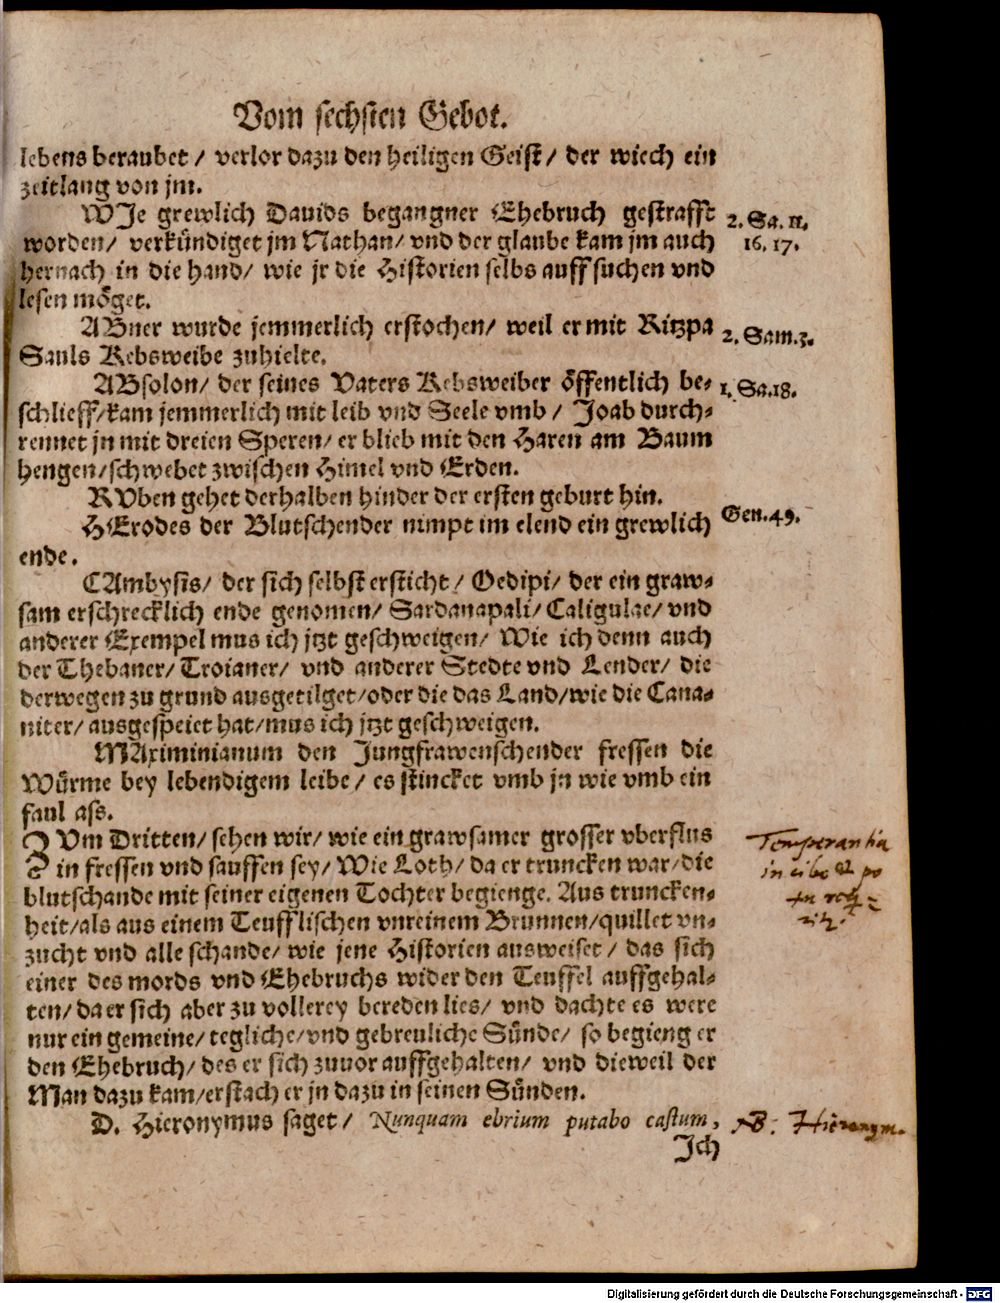 Vom sechsten Gebot.
lebens beraubet / verlor dazu den heiligen Geist / der wiech ein
zeitlang von jm.
WJe grewlich Dauids begangner Ehebruch gestrafft
2. Sa. 11.
worden / verkündiget jm Nathan / vnd der glaube kam jm auch
16. 17.
hernach in die hand / wie jr die Historien selbs auffsuchen vnd
lesen möget.
ABner wurde jemmerlich erstochen / weil er mit Ritzpa
2. Sam. 3.
Sauls Kebsweibe zuhielte.
ABsolon / der seines Vaters Kebsweiber öffentlich be-
1. Sa. 18.
schlieff / kam jemmerlich mit leib vnd Seele vmb / Joab durch-
rennet jn mit dreien Speren / er blieb mit den Haren am Baum
hengen / schwebet zwischen Himel vnd Erden.
RVben gehet derhalben hinder der ersten geburt hin.
Gen. 49.
HErodes der Blutschender nimpt im elend ein grewlich
ende.
CAmbysis / der sich selbst ersticht / Oedipi / der ein graw-
sam erschrecklich ende genomen / Sardanapali / Caligulae / vnd
anderer Exempel mus ich jtzt geschweigen / Wie ich denn auch
der Thebaner / Troianer / vnd anderer Stedte vnd Lender / die
derwegen zu grund ausgetilget / oder die das Land / wie die Cana-
niter / ausgespeiet hat / mus ich jtzt geschweigen.
MAximinianum den Jungfrawenschender fressen die
Würme bey lebendigem leibe / es stincket vmb jn wie vmb ein
faul ass.
ZVm Dritten / sehen wir / wie ein grawsamer grosser vberflus
Temperantia
in fressen vnd sauffen sey / Wie Loth / da er truncken war / die
in cibo & po
blutschande mit seiner eigenen Tochter begienge. Aus truncken-
tu
heit / als aus einem Teufflischen vnreinem Brunnen / quillet vn-
zucht vnd alle schande / wie jene Historien ausweiset / das sich
einer des mords vnd Ehebruchs wider den Teuffel auffgehal-
ten / da er sich aber zu vollerey bereden lies / vnd dachte es were
nur ein gemeine / tegliche / vnd gebreuliche Sünde / so begieng er
den Ehebruch / des er sich zuuor auffgehalten / vnd dieweil der
Man dazu kam / erstach er jn dazu in seinen Sünden.
D. Hieronymus saget / Nunquam ebrium putabo castum,
NB: Hieronym.
Jch
Digitalisierung gefördert durch die Deutsche Forschungsgemeinschaft - DFG